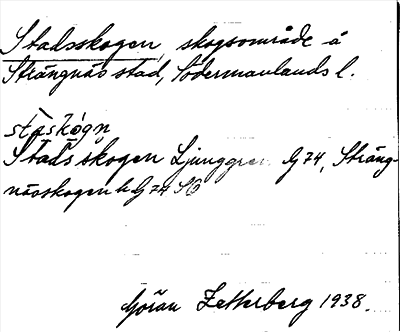 Stadsskogen, skogsområde å
Strängnäs stad, Södermanlands l.
stàskógn̥
Stadsskogen Ljunggren G 74, Sträng-
nässkogen G 74
Göran Zetterberg 1938.